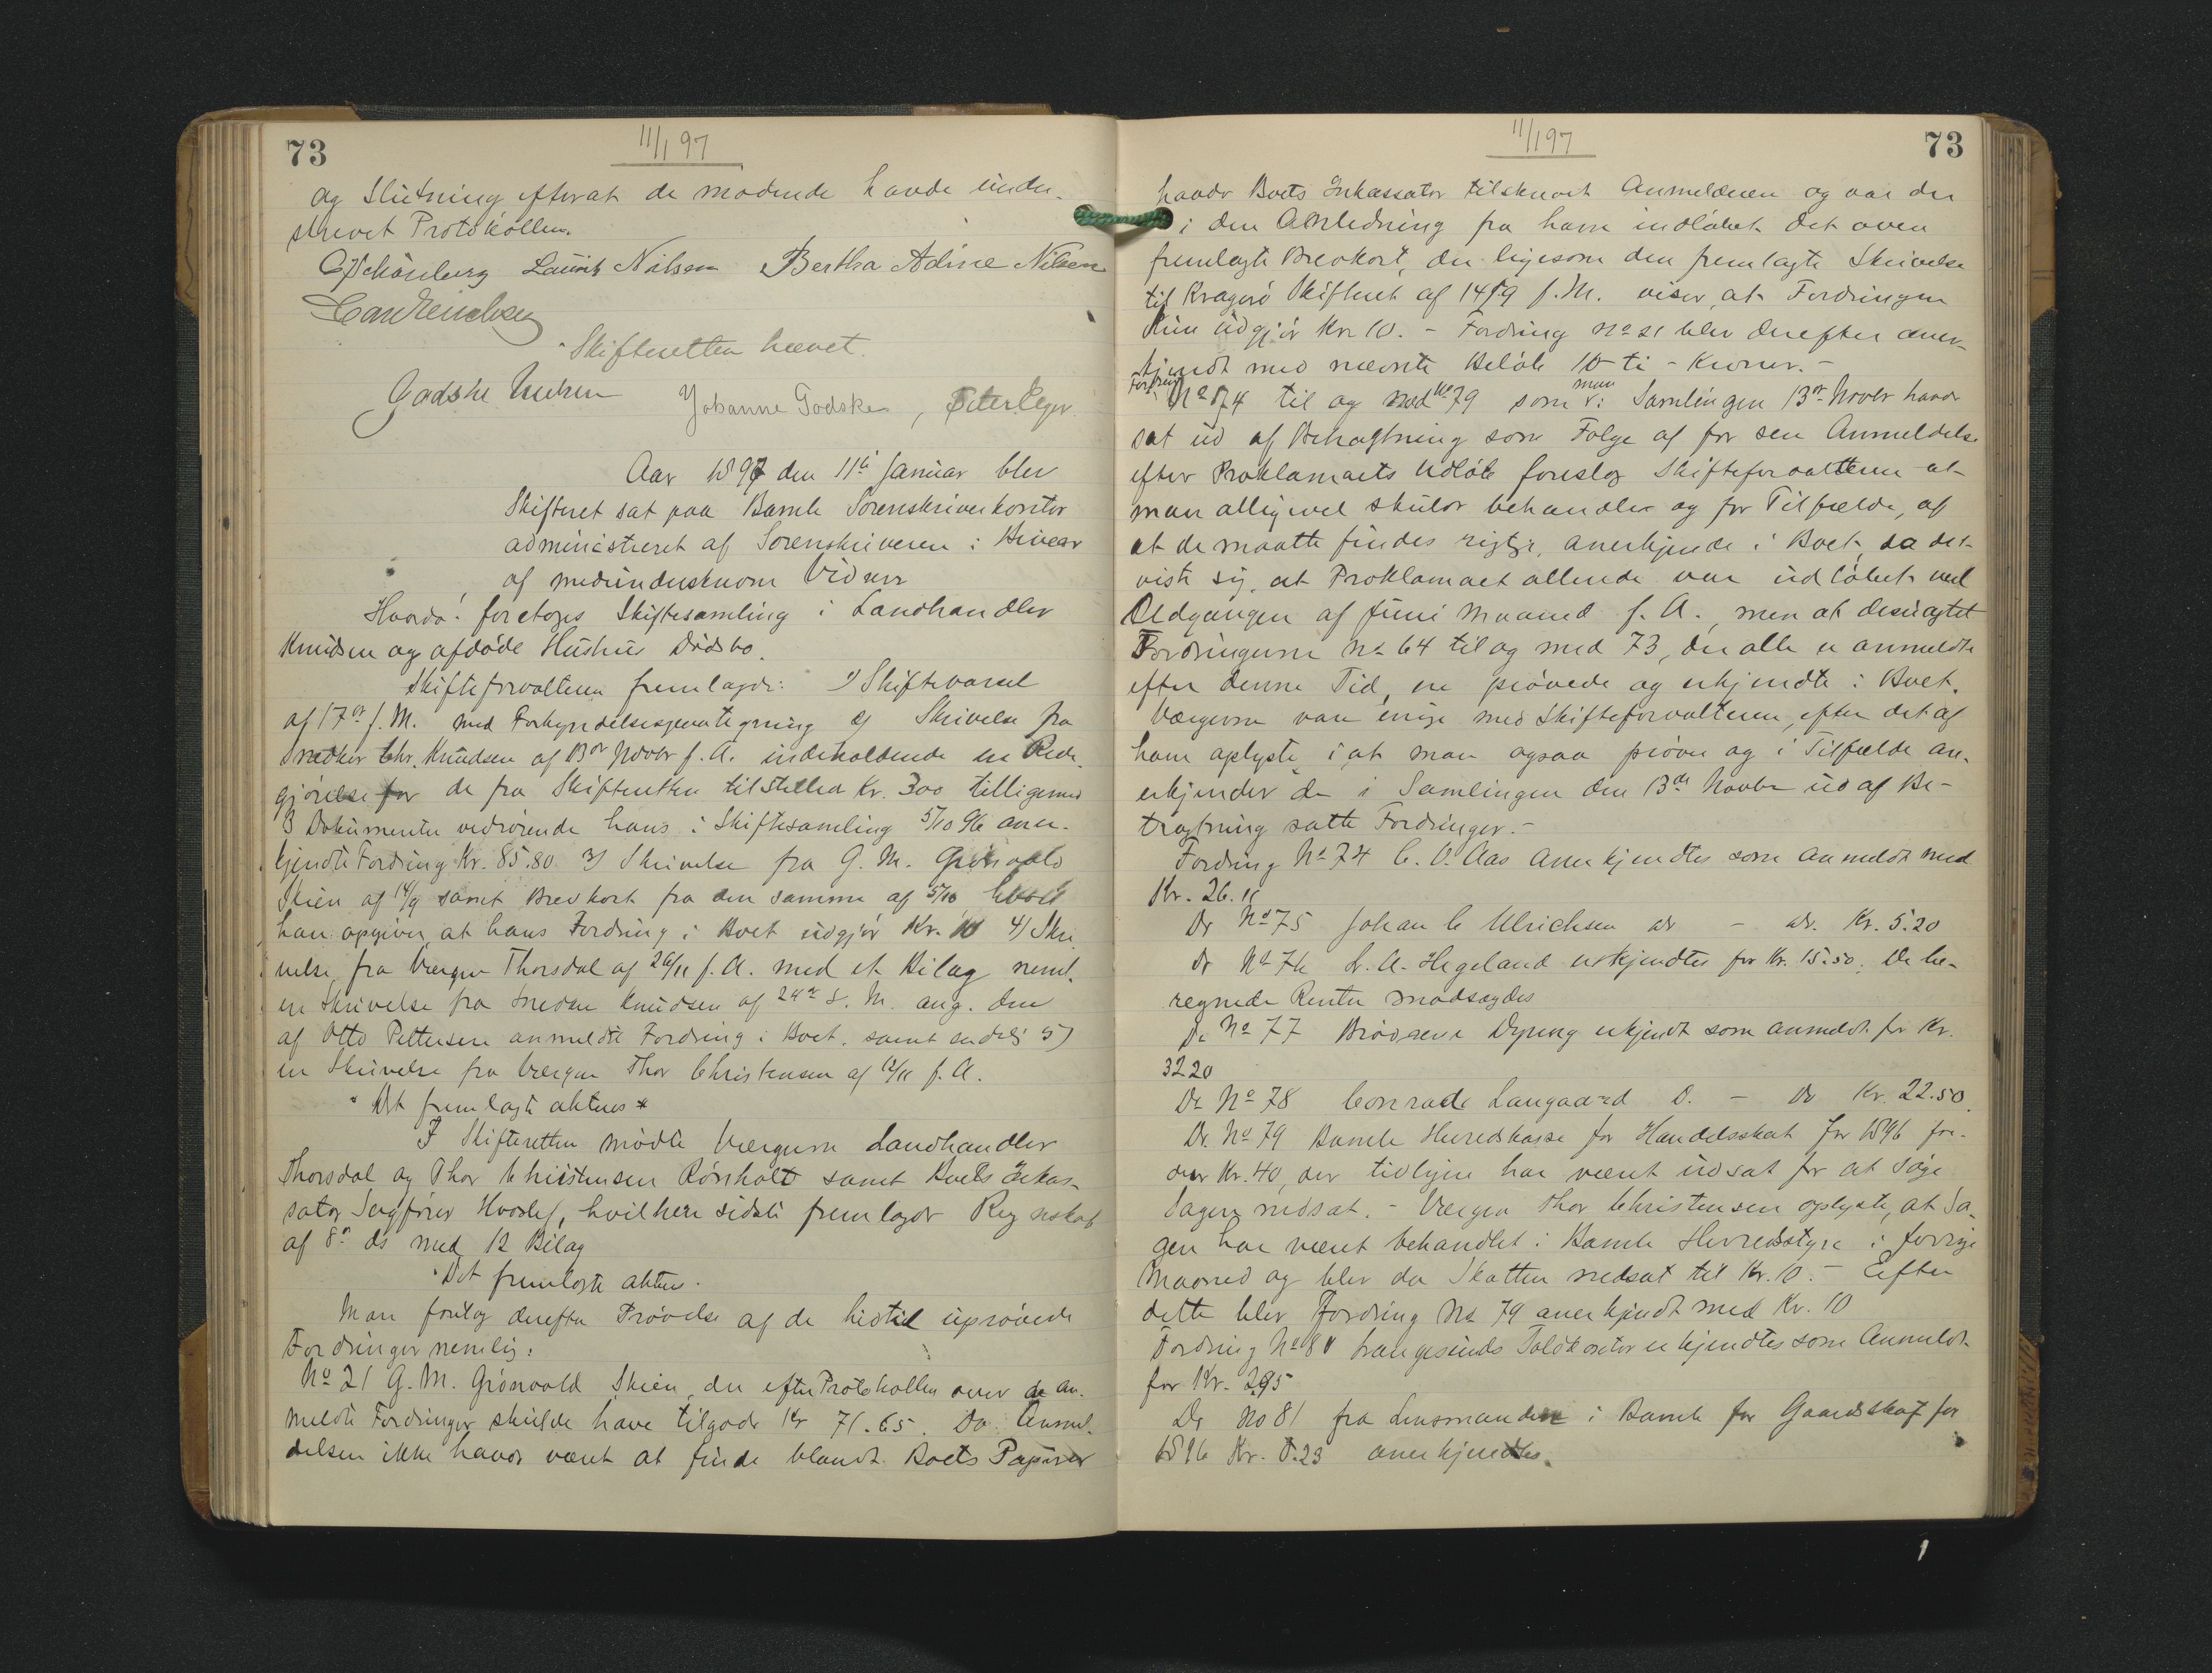 73
11/1 97
og Slutning efterat de mødende havde under-
skrevet Protokollen.
Laurits Nilsen Bertha Adine Nilsen
Skifteretten hævet.
Godske Johanne Godske, Peter
Aar 1897 den 11te Januar blev
Skifteret sat paa Bamle Sorenskriverkontor
administreret af Sorenskriveren i Nærvær
af medunderskrevne Vidner
Hvorda: foretoges Skiftesamling i Landhandler
Knudsen og afdøde Hustrus Dødsbo.
Skifteforvalteren fremlagde: 1) Skiftevarsel
af 17de f. M. med Forkyndelsespaategning 2) Skrivelse fra
Snedker Chr. Knudsen af 13de Novbr f. A. indeholdende en Rede-
gjørelse for de fra Skifteretten tilstillede Kr. 300 tilligemed
3 Dokumenter vedrørende hans i Skiftesamling 5/10 96 aner-
kjendte Fordring Kr. 85.80. 3) Skrivelse fra G. M. Grønvold
Skien af 14/9 samt Brevkort fra den samme af 5/10 hvori
han opgiver, at hans Fordring i Boet udgjør Kr. 10 4) Skri-
velse fra Værgen Thorsdal af 26/11 f. A. med et Bilag neml.
en Skrivelse fra Snedker Knudsen af 24de s. M. ang. den
af Otto Pettersen anmeldte Fordring i Boet, samt endelig 5)
en Skrivelse fra Værgen Thor Christensen af 12/11 f. A.
Det fremlagte akteres
I Skifteretten mødte Værgerne Landhandler
Thorsdal og Thor Christensen Rønholt samt Boets Inkas-
sator Sagfører Hvoslef, hvilken sidste fremlagde Regnskab
af 8de ds med 12 Bilag
Det fremlagte akteres.
Man foretog derefter Prøvelse af de hidtil uprøvede
Fordringer nemlig:
No 21 G. M. Grønvold Skien, der efter Protokollen over de an-
meldte Fordringer skulde have tilgode Kr 71.65. Da Anmel-
delsen ikke havde været at finde blandt Boets Papirer
73
11/1 97
havde Boets Inkassator tilskrevet Anmelderen og var der
i den Anledning fra ham indløbet det oven
fremlagte Brevkort, der ligesom den fremlagte Skrivelse
til Kragerø Skifteret af 14/9 f. M. viser, at Fordringen
kun udgjør Kr. 10. - Fordring No 21 blev derefter aner-
kjendt med nævnte Beløb 10 - ti - Kroner. -
Fordring No 74 til og med No 79 som man i Samlingen 13de Novbr havde
sat ud af Betragtning som Følge af for sen Anmeldelse
efter Proklamaets Udløb foreslog Skifteforvalteren at
man alligevel skulde behandle og for Tilfælde, af
at de maatte findes rigtige, anerkjende i Boet, da det
viste sig, at Proklamaet allerede var udløbet ved
Udgangen af Juni Maaned f. A., men at desuagtet
Fordringerne No 64 til og med 73, der alle er anmeldte
efter denne Tid, er prøvede og erkjendte i Boet.
Værgerne vare enige med Skifteforvalteren, efter det af
ham oplyste, i at man ogsaa prøver og i Tilfælde an-
erkjender de i Samlingen den 13de Novbr ud af Be-
tragtning satte Fordringer. -
Fordring No 74 C. O. Aas anerkjendtes som anmeldt med
Kr. 26.11
Do No 75 Johan C Ulrichsen do - do. Kr. 5.20
do No 76 L. A. Hegeland erkjendtes for Kr. 15.50. De be-
regnede Renter modsagdes
Do No 77 Brødrene Dyring erkjendt som anmeldt for Kr.
32.20
Do No 78 Conrad Langaard D. - Do Kr. 22.50.
Do. No 79 Bamle Herredskasse for Handelsskat for 1896 for-
drer Kr. 40, der tidligere har været udsat for at søge
Sagen nedsat. - Værgen Thor Christensen oplyste, at Sa-
gen har været behandlet i Bamle Herredsstyre i forrige
Maaned og blev da Skatten nedsat til Kr. 10. - Efter
dette blev Fordring No 79 anerkjendt med Kr. 10
Fordring No 80 Langesunds Toldkontor erkjendtes som Anmeldt
for Kr. 295
Do No 81 fra Lensmanden i Bamle for Gaardsskat for
1896 Kr. 8.23 anerkjendtes.